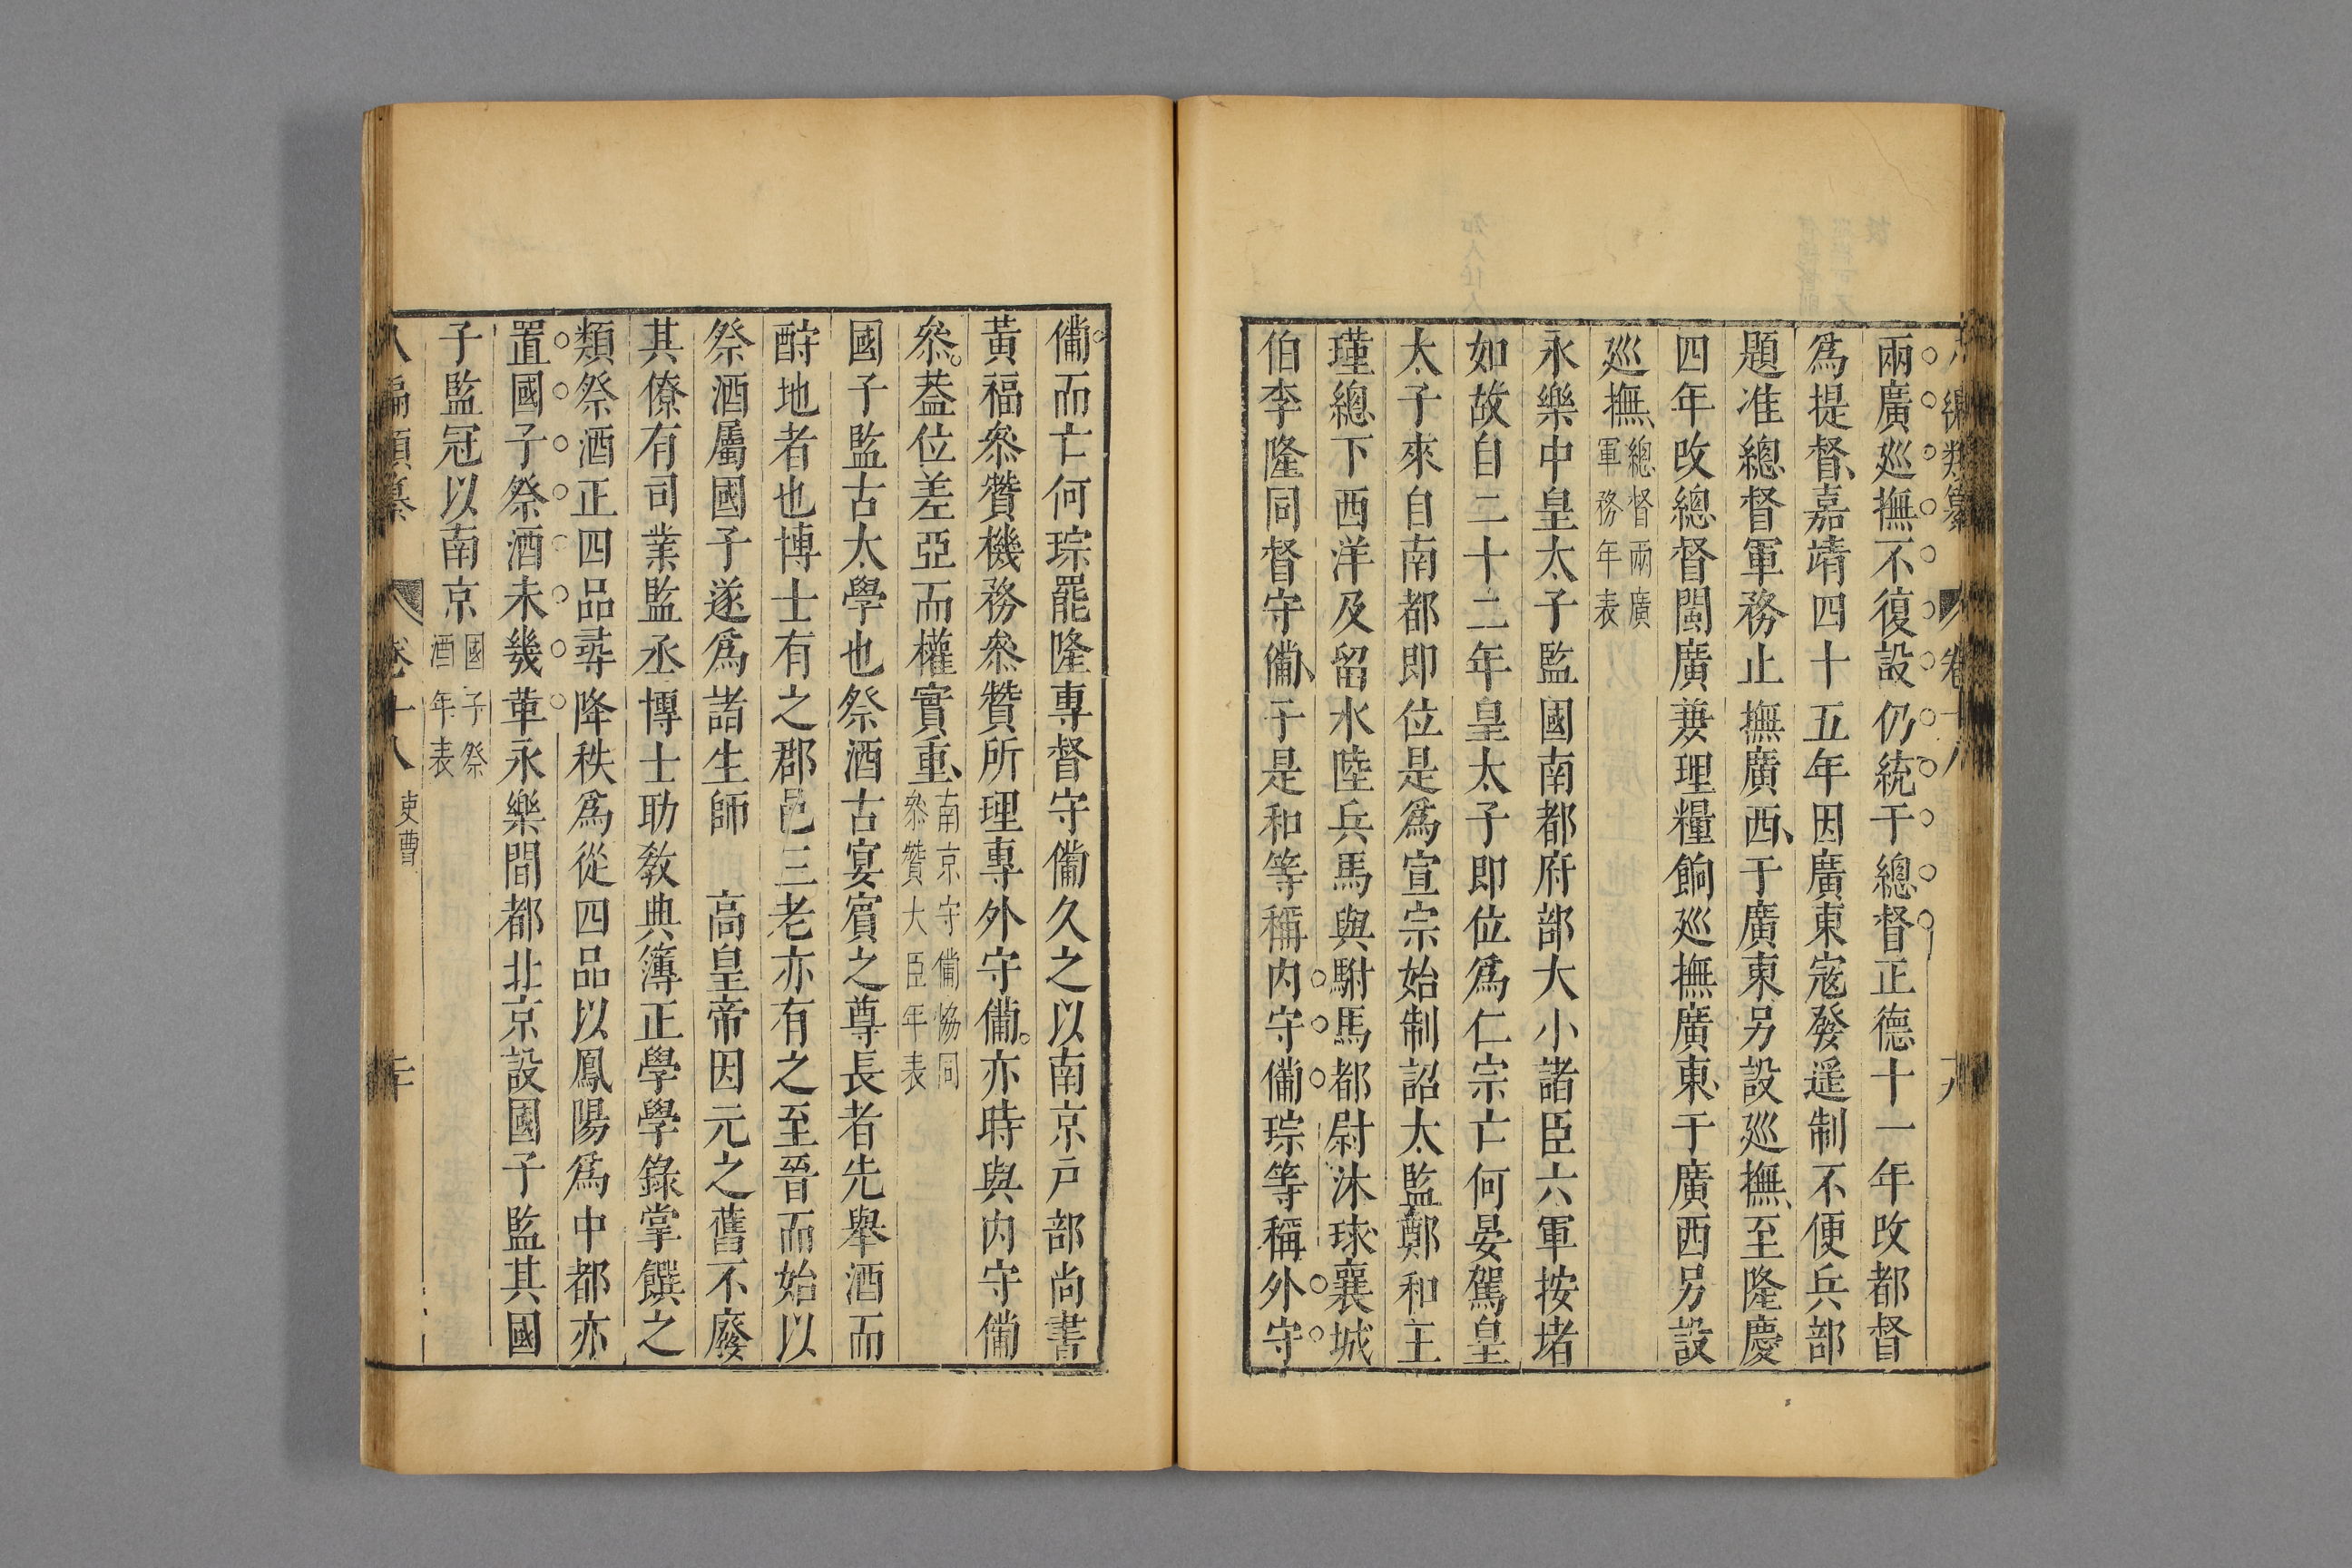 兩廣廵撫不復設仍統于總督正德十一年改都督
爲提督嘉靖四十五年因廣東宼發遥制不便兵部
題准總督軍務止撫廣西于廣東另設廵撫至隆慶
四年改總督閩廣兼理糧餉廵撫廣東于廣西另設
廵撫總督兩廣軍務年表
永樂中皇太子監國南都府部大小諸臣六軍按堵
如故自二十二年皇太子即位爲仁宗亡何晏駕皇
太子來自南都即位是爲宣宗始制詔太監鄭和王
瑾總下西洋及留水陸兵馬與駙馬都尉沐球襄城
伯李隆同督守備于是和等稱内守備琮等稱外守
備而亡何琮罷隆專督守備久之以南京戸部尚書
黃福叅贊機務叅贊所理專外守備亦時與内守備
叅葢位差亞而權實重南京守備協同叅贊大臣年表
國子監古太學也祭酒古宴賓之尊長者先舉酒而
酹地者也博士有之郡邑三老亦有之至晉而始以
祭酒屬國子遂爲諸生師　高皇帝因元之舊不廢
其僚有司業監丞博士助敎典簿正學學錄掌饌之
類祭酒正四品尋降秩爲從四品以鳳陽爲中都亦
置國子祭酒未幾革永樂間都北京設國子監其國
子監冠以南京國子祭酒年表
八編類纂　卷十八　吏曹　二十